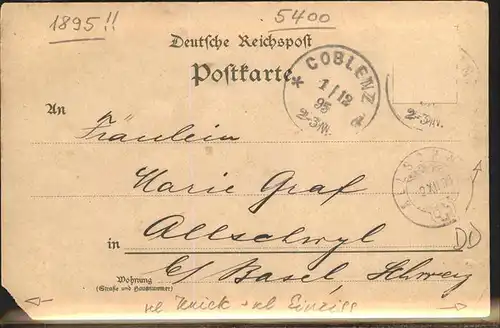 1895!!
5400
Deutsche Reichspost
Postkarte
* COBLENZ
1/12
95
2-3N.
2-3N.
An
Fräulein
Marie Graf
in Allschwyl
Wohnung
(Straße und Hausnummer)
b/ Basel, Schweiz
DD
kl Knick + kl Einriss